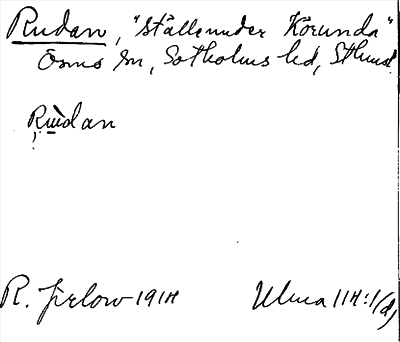 Rudan, "ställe under Körunda"
Ösmo sn, Sotholms hd, Sthms l.
Rùdan
R. Jirlow 1914
Ulma 114:1(d)